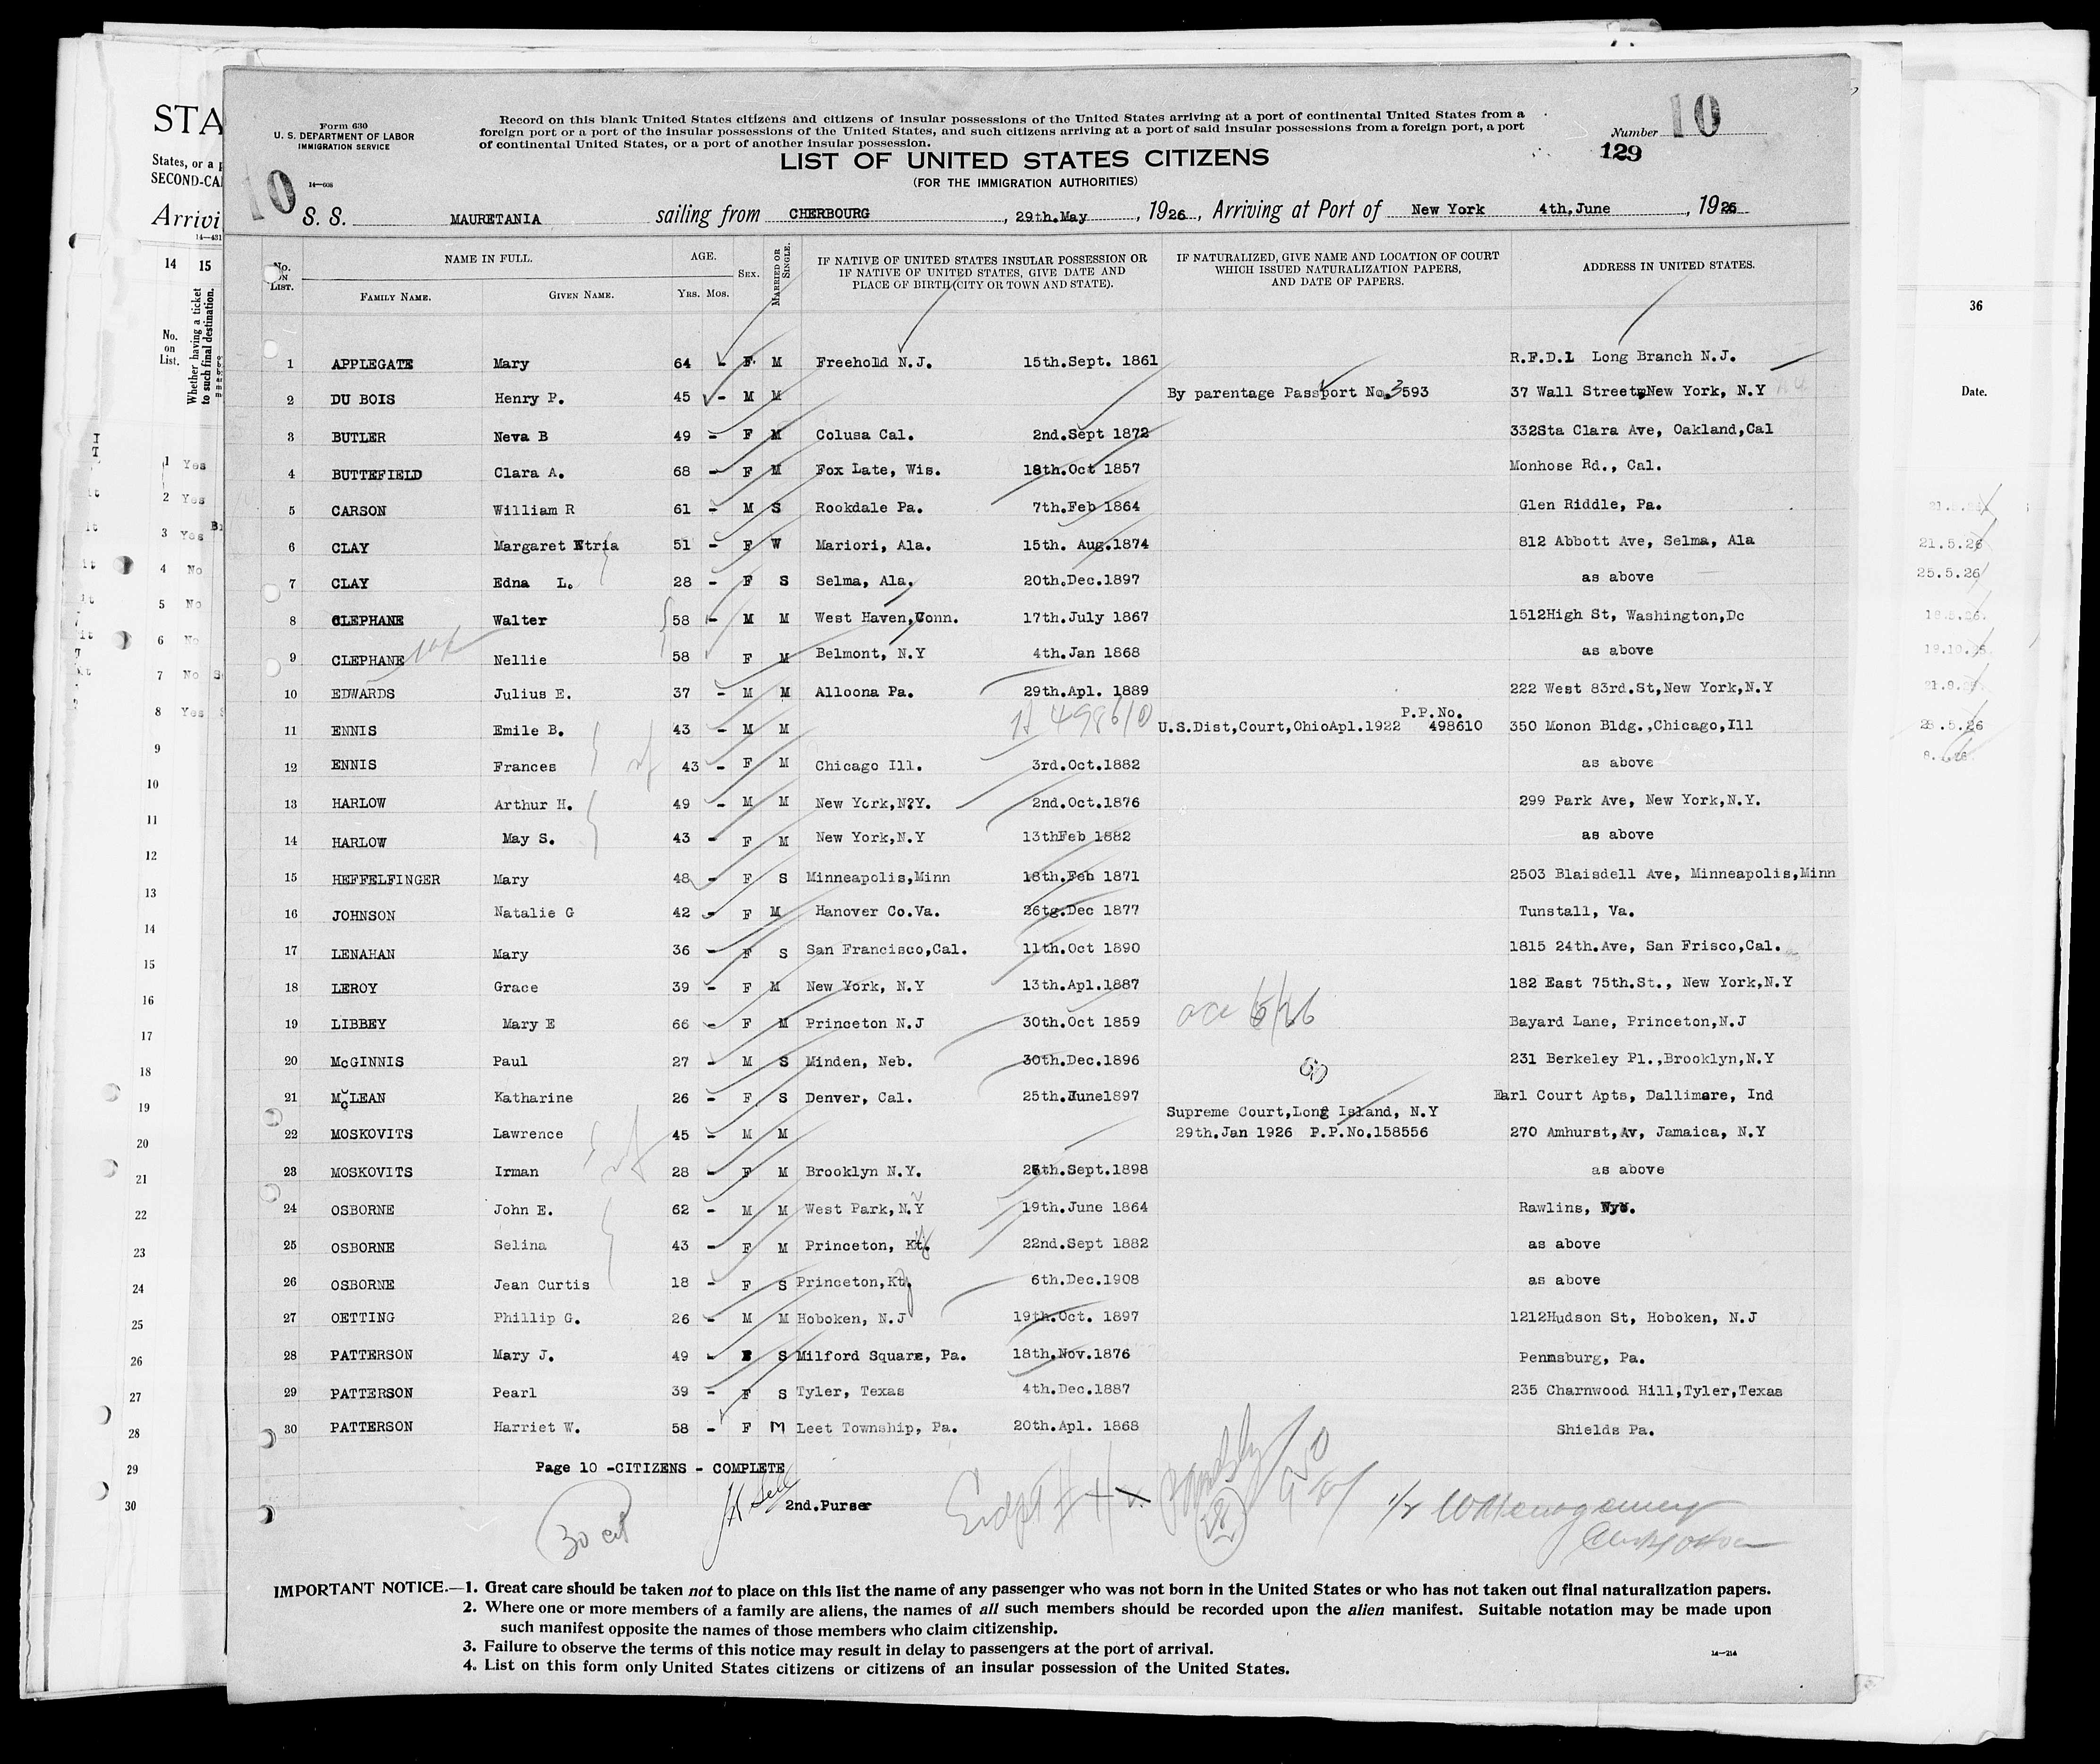 STA
States, or a p
SECOND-CA
Arrivi
14 15
Whether having a ticket
to such final destination.
No.
on
List.
1 Yes
2 Yes
3 Yes
4 No
5 No
6 No
7 No
8 Yes
9
10
11
12
13
14
15
16
17
18
19
20
21
22
23
24
25
26
27
28
29
30
Form 630
U. S. DEPARTMENT OF LABOR
IMMIGRATION SERVICE
Record on this blank United States citizens and citizens of insular possessions of the United States arriving at a port of continental United States from a
foreign port or a port of the insular possessions of the United States, and such citizens arriving at a port of said insular possessions from a foreign port, a port
of continental United States, or a port of another insular possession.
Number 10
129
LIST OF UNITED STATES CITIZENS
(FOR THE IMMIGRATION AUTHORITIES)
10
S. S. MAURETANIA sailing from CHERBOURG, 29th.May, 1926, Arriving at Port of New York 4th,June, 1926
No. ON LIST. NAME IN FULL. FAMILY NAME. GIVEN NAME. AGE. YRS. MOS. SEX. MARRIED OR SINGLE. IF NATIVE OF UNITED STATES INSULAR POSSESSION OR IF NATIVE OF UNITED STATES, GIVE DATE AND PLACE OF BIRTH (CITY OR TOWN AND STATE). IF NATURALIZED, GIVE NAME AND LOCATION OF COURT WHICH ISSUED NATURALIZATION PAPERS, AND DATE OF PAPERS. ADDRESS IN UNITED STATES.
1 APPLEGATE Mary 64 - F M Freehold N.J. 15th.Sept. 1861 R.F.D.1 Long Branch N.J.
2 DU BOIS Henry P. 45 - M M By parentage Passport No.3593 37 Wall Street,New York, N.Y
3 BUTLER Neva B 49 - F M Colusa Cal. 2nd.Sept 1872 332Sta Clara Ave, Oakland,Cal
4 BUTTEFIELD Clara A. 68 - F M Fox Late, Wis. 18th.Oct 1857 Monhose Rd., Cal.
5 CARSON William R 61 - M S Rookdale Pa. 7th.Feb 1864 Glen Riddle, Pa.
6 CLAY Margaret Etria 51 - F W Mariori, Ala. 15th. Aug.1874 812 Abbott Ave, Selma, Ala
7 CLAY Edna L. 28 - F S Selma, Ala. 20th.Dec.1897 as above
8 CLEPHANE Walter 58 - M M West Haven,Conn. 17th.July 1867 1512High St, Washington,Dc
9 CLEPHANE Nellie 58 F M Belmont, N.Y 4th.Jan 1868 as above
10 EDWARDS Julius E. 37 - M M Alloona Pa. 29th.Apl. 1889 222 West 83rd.St,New York,N.Y
11 ENNIS Emile B. 43 - M M 498610 U.S.Dist,Court,OhioApl.1922 P.P.No. 498610 350 Monon Bldg.,Chicago,Ill
12 ENNIS Frances 43 - F M Chicago Ill. 3rd.Oct.1882 as above
13 HARLOW Arthur H. 49 - M M New York,N?Y. 2nd.Oct.1876 299 Park Ave, New York,N.Y.
14 HARLOW May S. 43 - F M New York,N.Y 13thFeb 1882 as above
15 HEFFELFINGER Mary 48 - F S Minneapolis,Minn 18th.Feb 1871 2503 Blaisdell Ave, Minneapolis,Minn
16 JOHNSON Natalie G 42 - F M Hanover Co.Va. 26tg.Dec 1877 Tunstall, Va.
17 LENAHAN Mary 36 - F S San Francisco,Cal. 11th.Oct 1890 1815 24th.Ave, San Frisco,Cal.
18 LEROY Grace 39 - F M New York, N.Y 13th.Apl.1887 182 East 75th.St., New York,N.Y
19 LIBBEY Mary E 66 - F M Princeton N.J 30th.Oct 1859 Bayard Lane, Princeton,N.J
20 McGINNIS Paul 27 - M S Minden, Neb. 30th.Dec.1896 231 Berkeley Pl.,Brooklyn,N.Y
21 McLEAN Katharine 26 - F S Denver, Cal. 25th.June1897 Earl Court Apts, Dallimere, Ind
22 MOSKOVITS Lawrence 45 - M M Supreme Court,Long Island, N.Y 29th.Jan 1926 P.P.No.158556 270 Amhurst,Av, Jamaica, N.Y
23 MOSKOVITS Irman 28 - F M Brooklyn N.Y. 26th.Sept.1898 as above
24 OSBORNE John E. 62 - M M West Park,N.Y 19th.June 1864 Rawlins, Wyo.
25 OSBORNE Selina 43 - F M Princeton, Kt. 22nd.Sept 1882 as above
26 OSBORNE Jean Curtis 18 - F S Princeton,Kt. 6th.Dec.1908 as above
27 OETTING Phillip G. 26 - M M Hoboken, N.J 19th.Oct. 1897 1212Hudson St, Hoboken, N.J
28 PATTERSON Mary J. 49 - F S Milford Square, Pa. 18th.Nov.1876 Pennsburg, Pa.
29 PATTERSON Pearl 39 - F S Tyler, Texas 4th.Dec.1887 235 Charnwood Hill,Tyler,Texas
30 PATTERSON Harriet W. 58 - F M Leet Township, Pa. 20th.Apl. 1868 Shields Pa.
Page 10 -CITIZENS - COMPLETE
2nd.Purser
30 cit
IMPORTANT NOTICE.—1. Great care should be taken not to place on this list the name of any passenger who was not born in the United States or who has not taken out final naturalization papers.
2. Where one or more members of a family are aliens, the names of all such members should be recorded upon the alien manifest. Suitable notation may be made upon
such manifest opposite the names of those members who claim citizenship.
3. Failure to observe the terms of this notice may result in delay to passengers at the port of arrival.
4. List on this form only United States citizens or citizens of an insular possession of the United States.
14—214
36
Date.
21.5.26
25.5.26
28.5.26